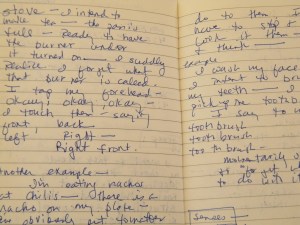 stove — I intend to
make tea — the
full — Ready to have
the burner under
it turned on — I suddenly
realize I forget what
that burner is called
I tap my forehead —
okay, okay, okay —
I touch them — say it,
front, back —
left Right —
Right front.
Another example —
I'm eating nachos
at Chilis — There is a
nacho on my plate —
do to them
have to stop &
look it them
I think
example
I wash my face
I intend to brush
my teeth — I
pick up my tooth
I say to
toothbrush
toothbrush
toothbrush
momentarily
to do with it